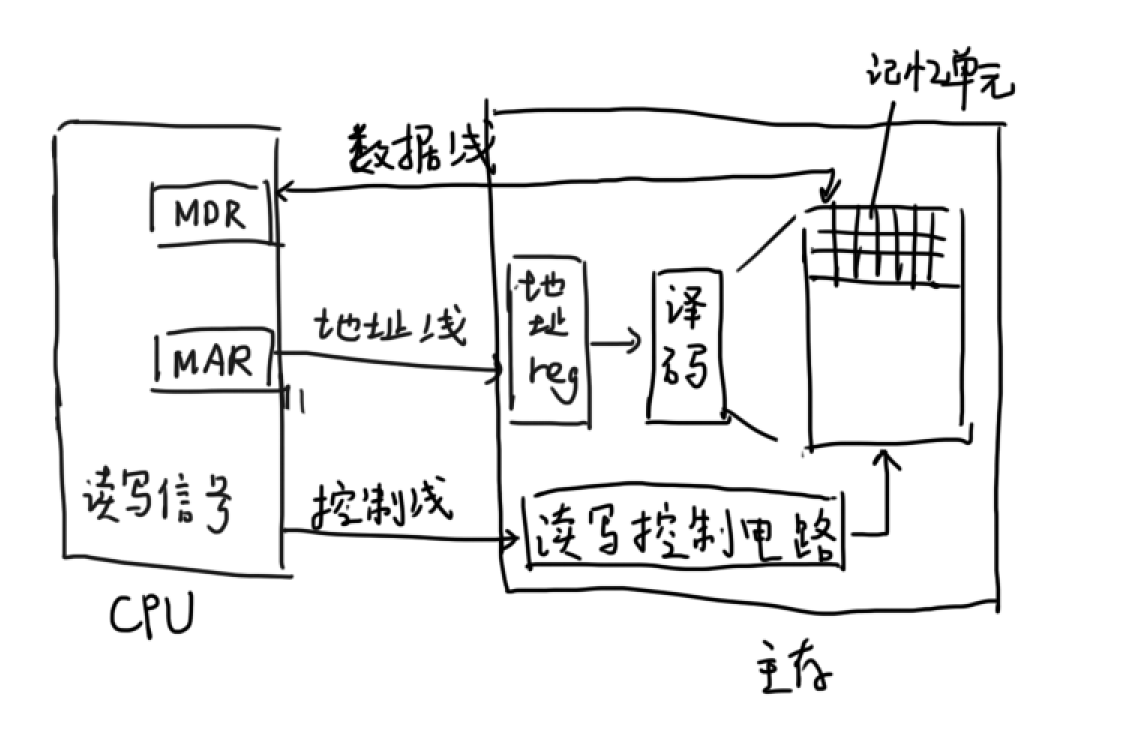 记忆单元
数据线
MDR
地址线
MAR
地
址
reg
译
码
读写信号
控制线
读写控制电路
CPU
主存